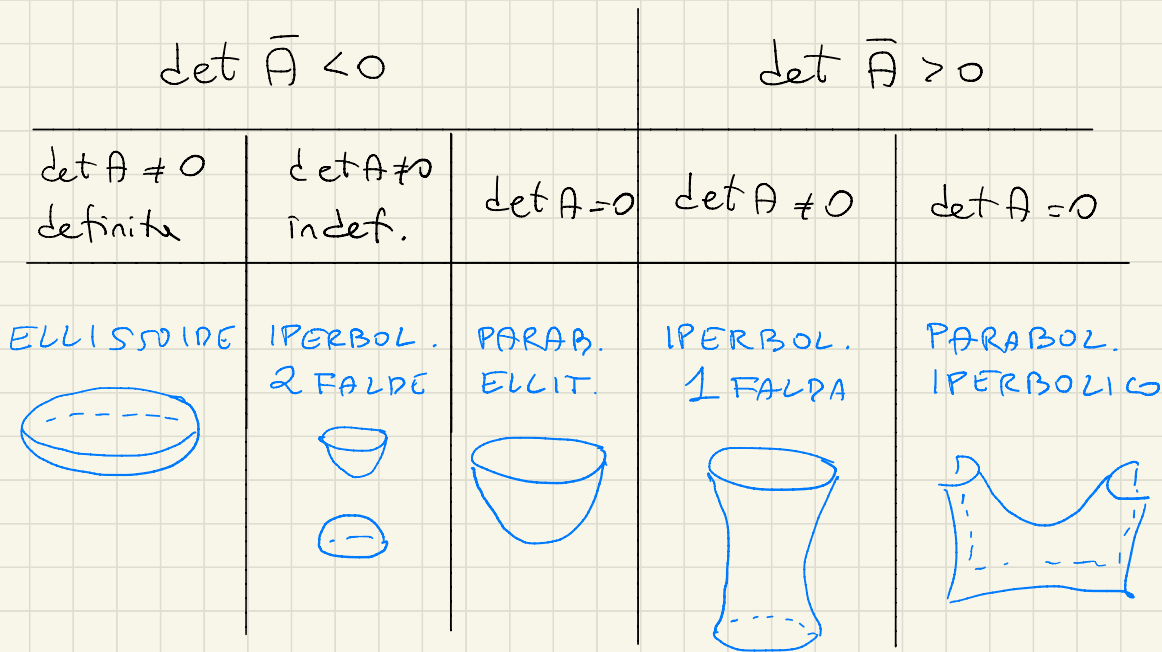 det Ā < 0
det Ā > 0
det A ≠ 0
definita
det A ≠ 0
indef.
det A = 0
det A ≠ 0
det A = 0
ELLISSOIDE
IPERBOL.
2 FALDE
PARAB.
ELLIT.
IPERBOL.
1 FALDA
PARABOL.
IPERBOLICO